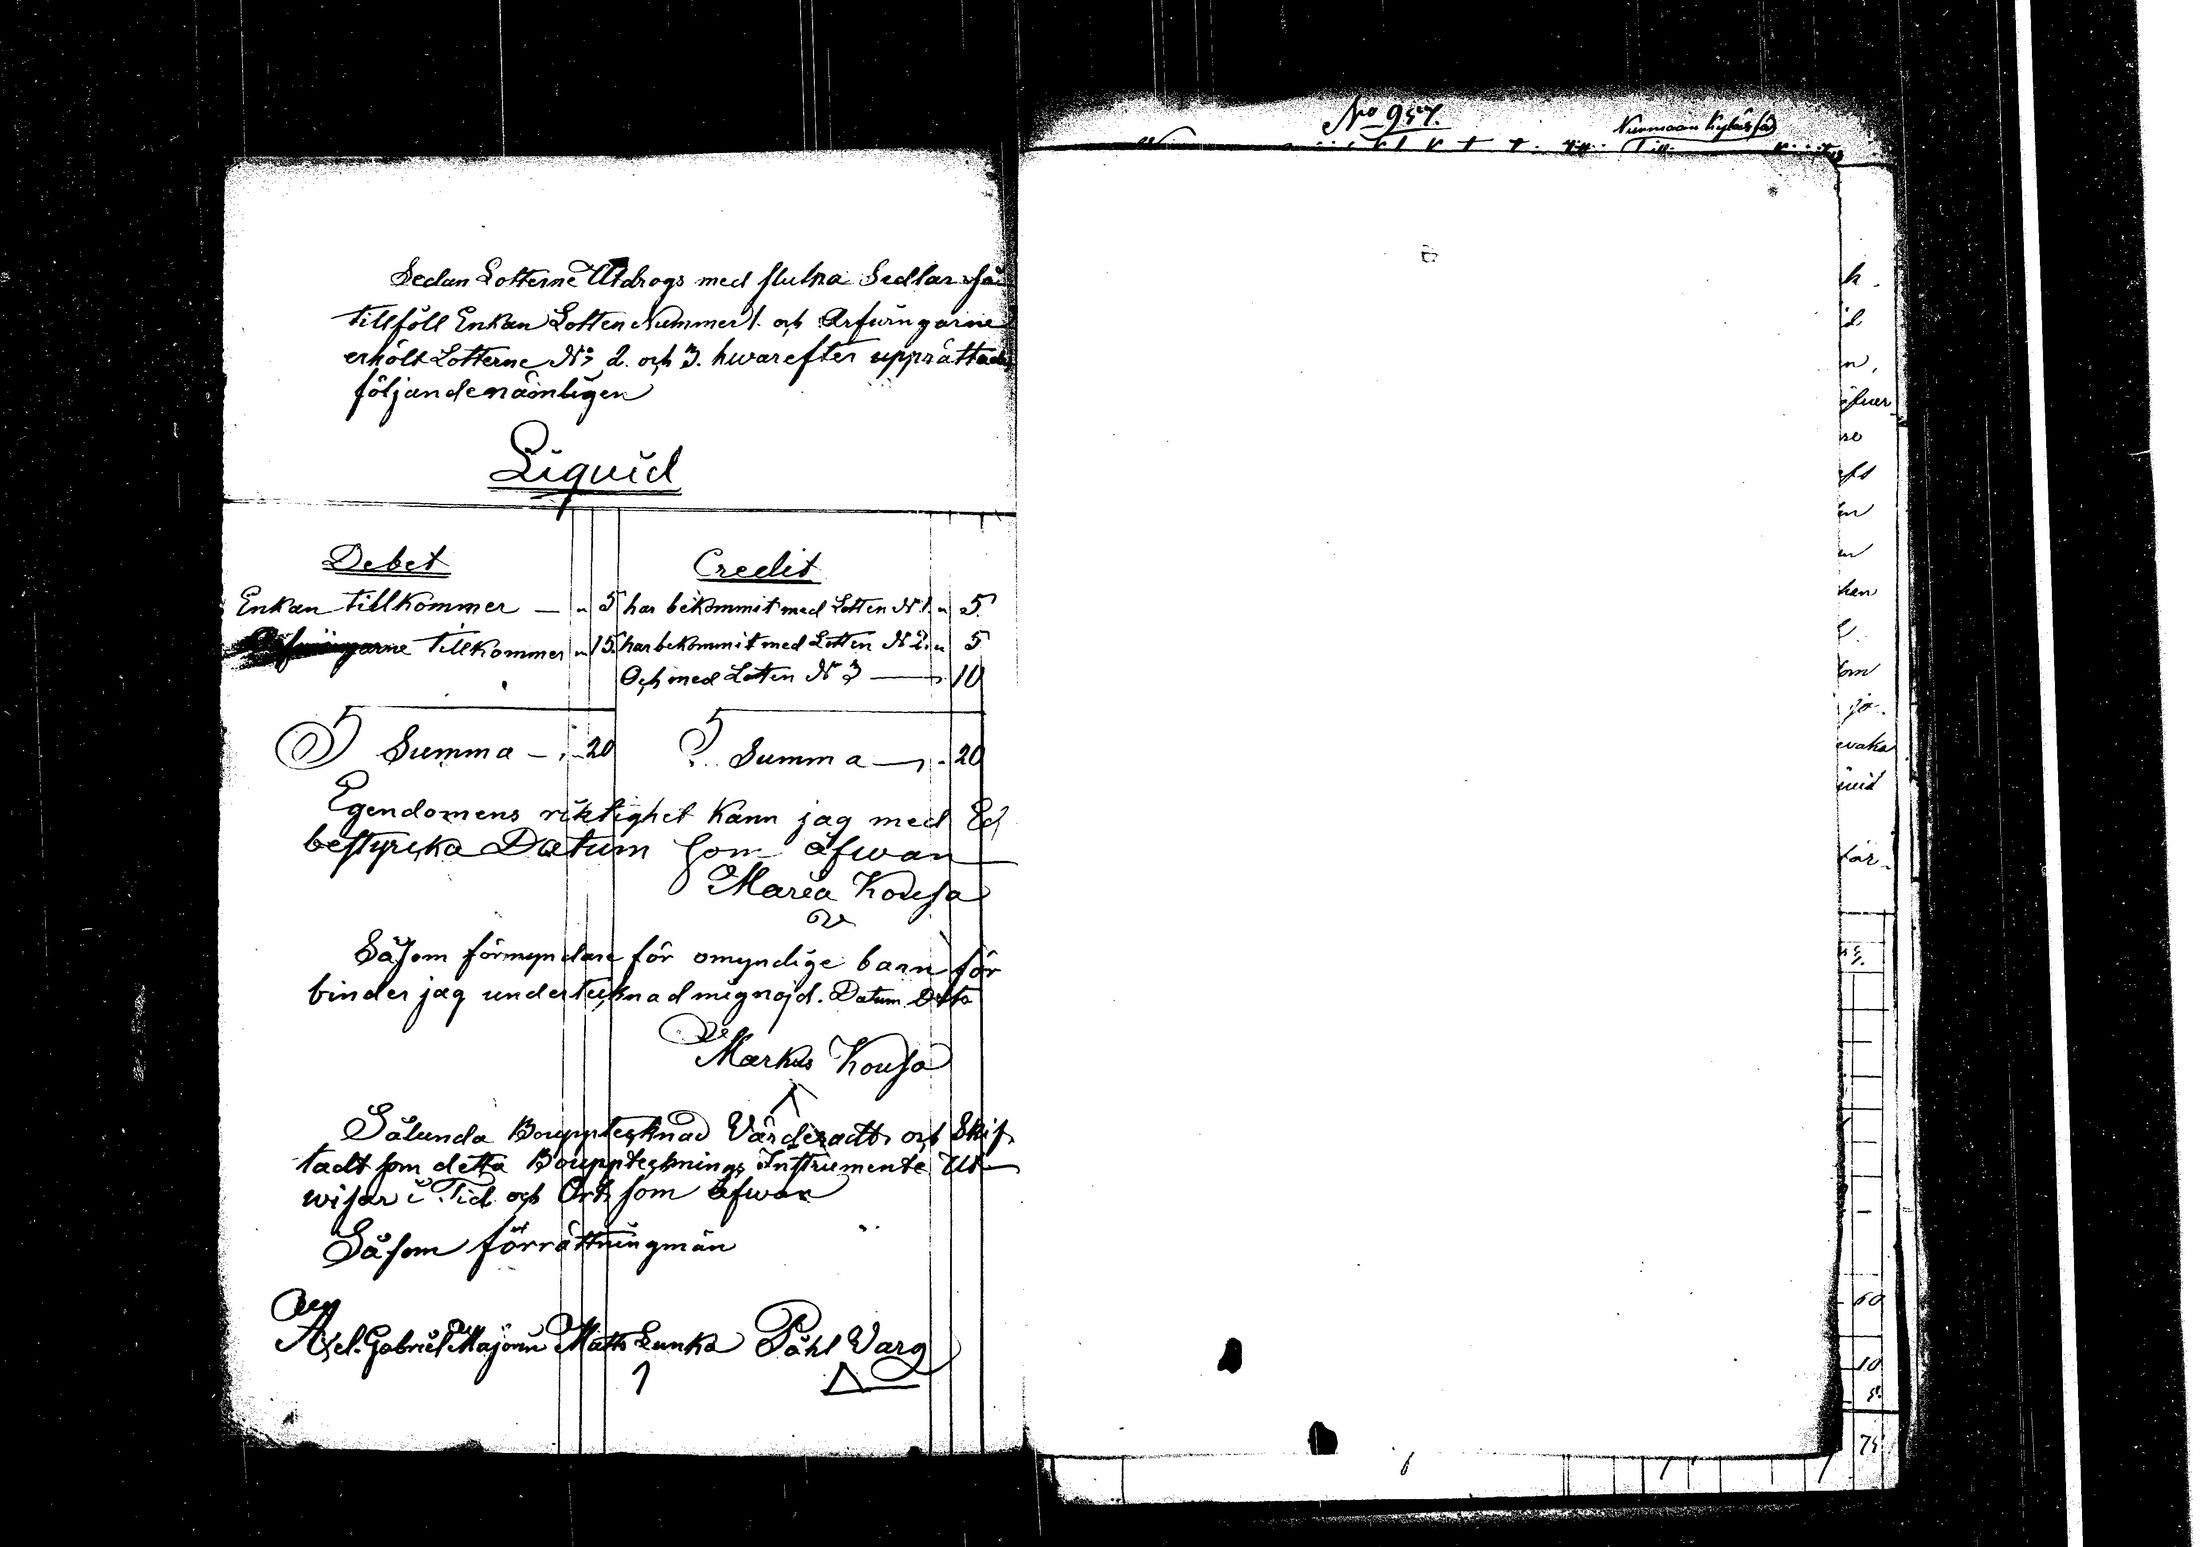 Sedan Lotterne Utdrogs med slutna Sedlar så
tillföll Enkan Lotten Nummer 1. och Arfwingarne
erhölt Lotterne No 2. och 3. hwarefter upprättades
följande nämligen
Liquid
Debet Credit
Enkan tillkommer — „ 5 har bekommit med Lotten N 1. „ 5
Arfwingarne tillkommer „ 15 har bekommit med Lotten N 2. „ 5
Och med Lotten N 3 — 10
Summa — „ 20 Summa — „ 20
Egendomens riktighet kann jag med Ed
bestyrcka Datum som åfwan
Maria Kousa
Såsom förmyndare för omyndige barn för
binder jag undertecknad mig nöjd. Datum Detto
Markus Kousa
Sålunda Boupptecknad Värderadt och Skif-
tadt som detta Boupptecknings Instrumente Ut-
wisar i Tid och Ort som åfwan
Såsom förrättningmän
Axel Gabriel Majorin Matts Lunka Påhl Varg
No 957.
60
10
5.
75